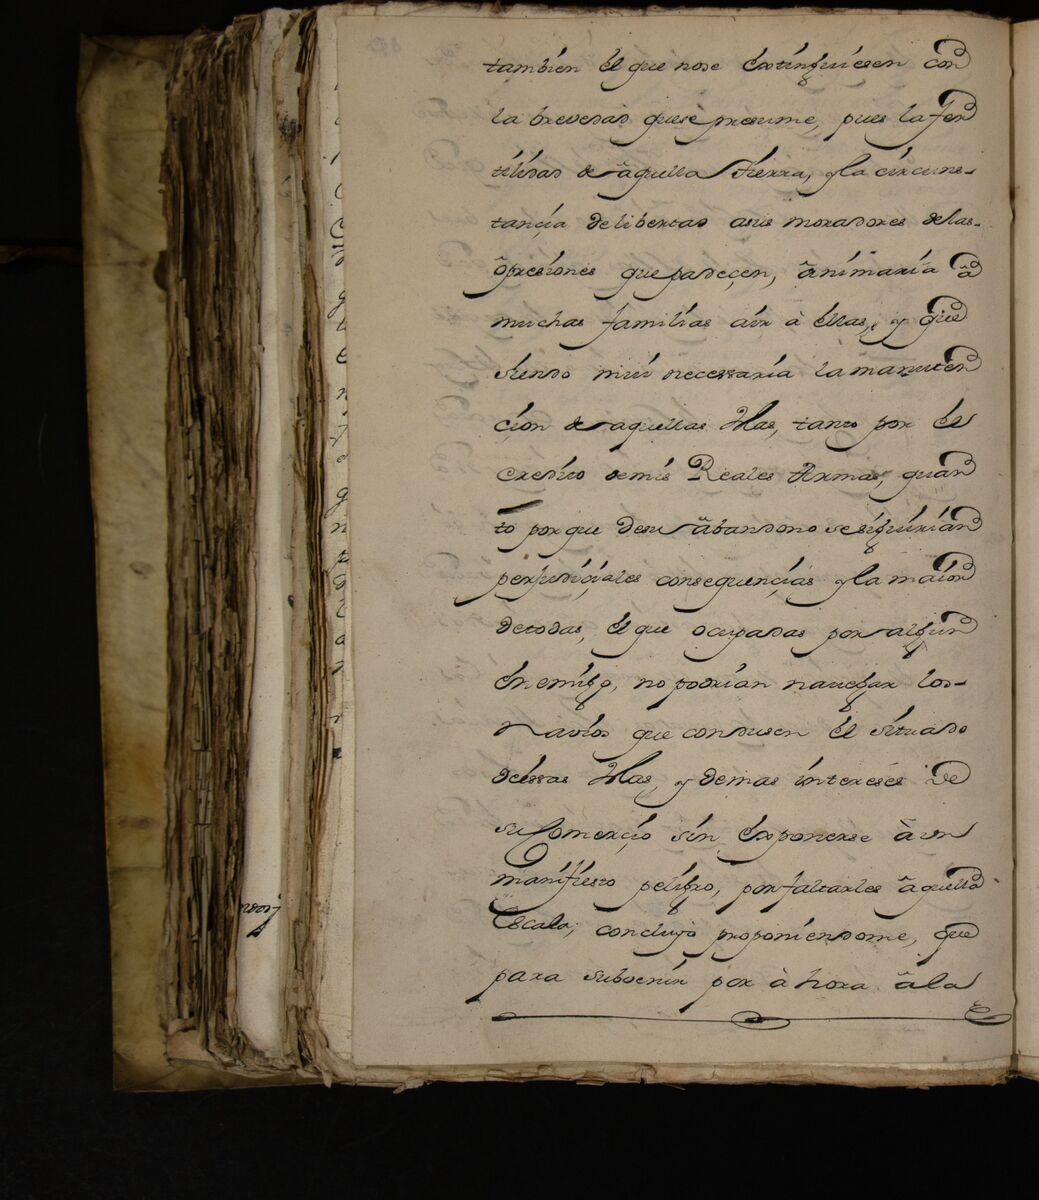 también él que no se éxtinguiesen con
la brevedad que se presume, pues la fer
tilidad de aquella tierra, y la circuns-
tançia de libertad a sus moradores de las-
opresiones que padeçen, ânimaría â
muchas familias à ir à éllas, y que
siendo mui necessaría la manuten
çión de aquellas Yslas, tanto por él
credito de mis Reales Armas, quan
to por que de su âbandono se siguirían
perjudiçiales consequençias y la maior
de todas, él que ocupadas por algun
énemigo, no podrían navegar los-
navíos que condusen él situado
de éssas Yslas, y demas intereses de
su Comerçio sin éxponerse â un
manifiesto peligro, por faltarles âquella
Escala; concluyo proponiendome, que
para subvenir por à hora â la